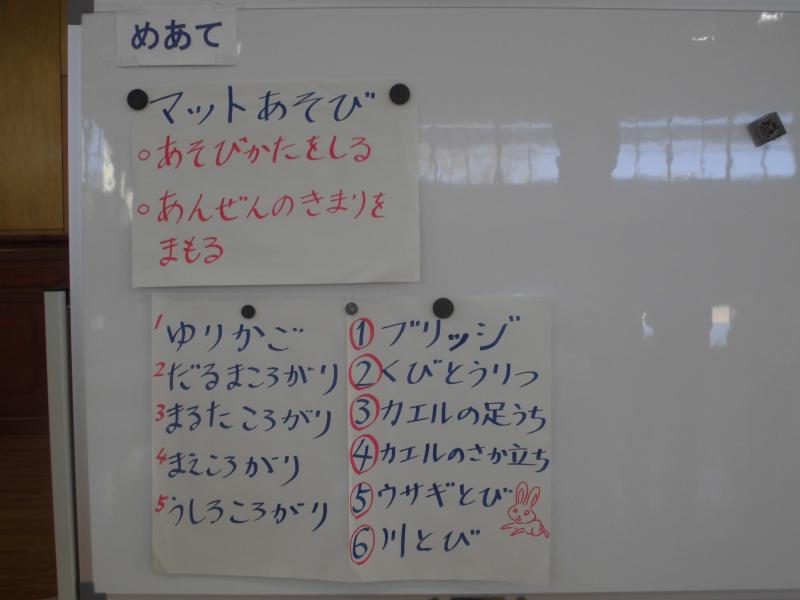 めあて
マットあそび
○あそびかたをしる
○あんぜんのきまりを
まもる
1 ゆりかご
2 だるまころがり
3 まるたころがり
4 まえころがり
5 うしろころがり
① ブリッジ
② くびとうりつ
③ カエルの足うち
④ カエルのさか立ち
⑤ ウサギとび
⑥ 川とび